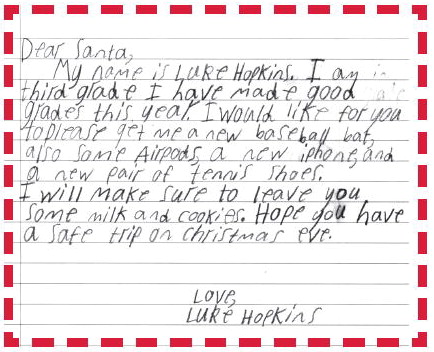 Dear Santa,
My name is Luke Hopkins. I am in
third glade I have made good
glades this year. I would like for you
to please get me a new baseball bat,
also some Airpods, a new iphone, and
a new pair of tennis shoes.
I will make sure to leave you
some milk and cookies. Hope you have
a safe trip on christmas eve.
Love,
Luke Hopkins